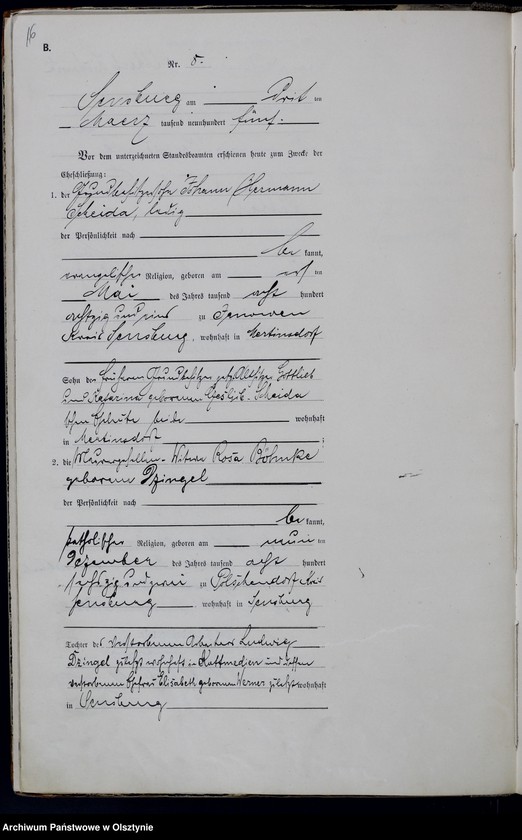 16
B.
Nr. 5.
Sensburg am Drit ten
Maerz tausend neunhundert fünf.
Vor dem unterzeichneten Standesbeamten erschienen heute zum Zwecke der
Eheschließung:
1. der Grundbesitzersohn Johann Hermann
Scheida, ledig
der Persönlichkeit nach
be kannt,
evangelischer Religion, geboren am elf ten
Mai des Jahres tausend acht hundert
achtzig und eins zu
Kreis Sensburg, wohnhaft in Mertinsdorf
Sohn des früheren Grundbesitzers jetzt Altsitzer Gottlieb
und Katarina geborenen Scheida
schen Eheleute beide wohnhaft
in Mertinsdorf ;
2. die Maurergesellen-Witwe Rosa Böhmke
geborene Dzingel
der Persönlichkeit nach
be kannt,
katholischer Religion, geboren am neun ten
Dezember des Jahres tausend acht hundert
sechszig und zwei zu Polschendorf Kreis
Sensburg wohnhaft in Sensburg
Tochter des verstorbenen Arbeiter Ludwig
Dzingel zuletzt wohnhaft in und dessen
verstorbenen Ehefrau Elisabeth geborenen Werner zuletzt wohnhaft
in Sensburg
Archiwum Państwowe w Olsztynie